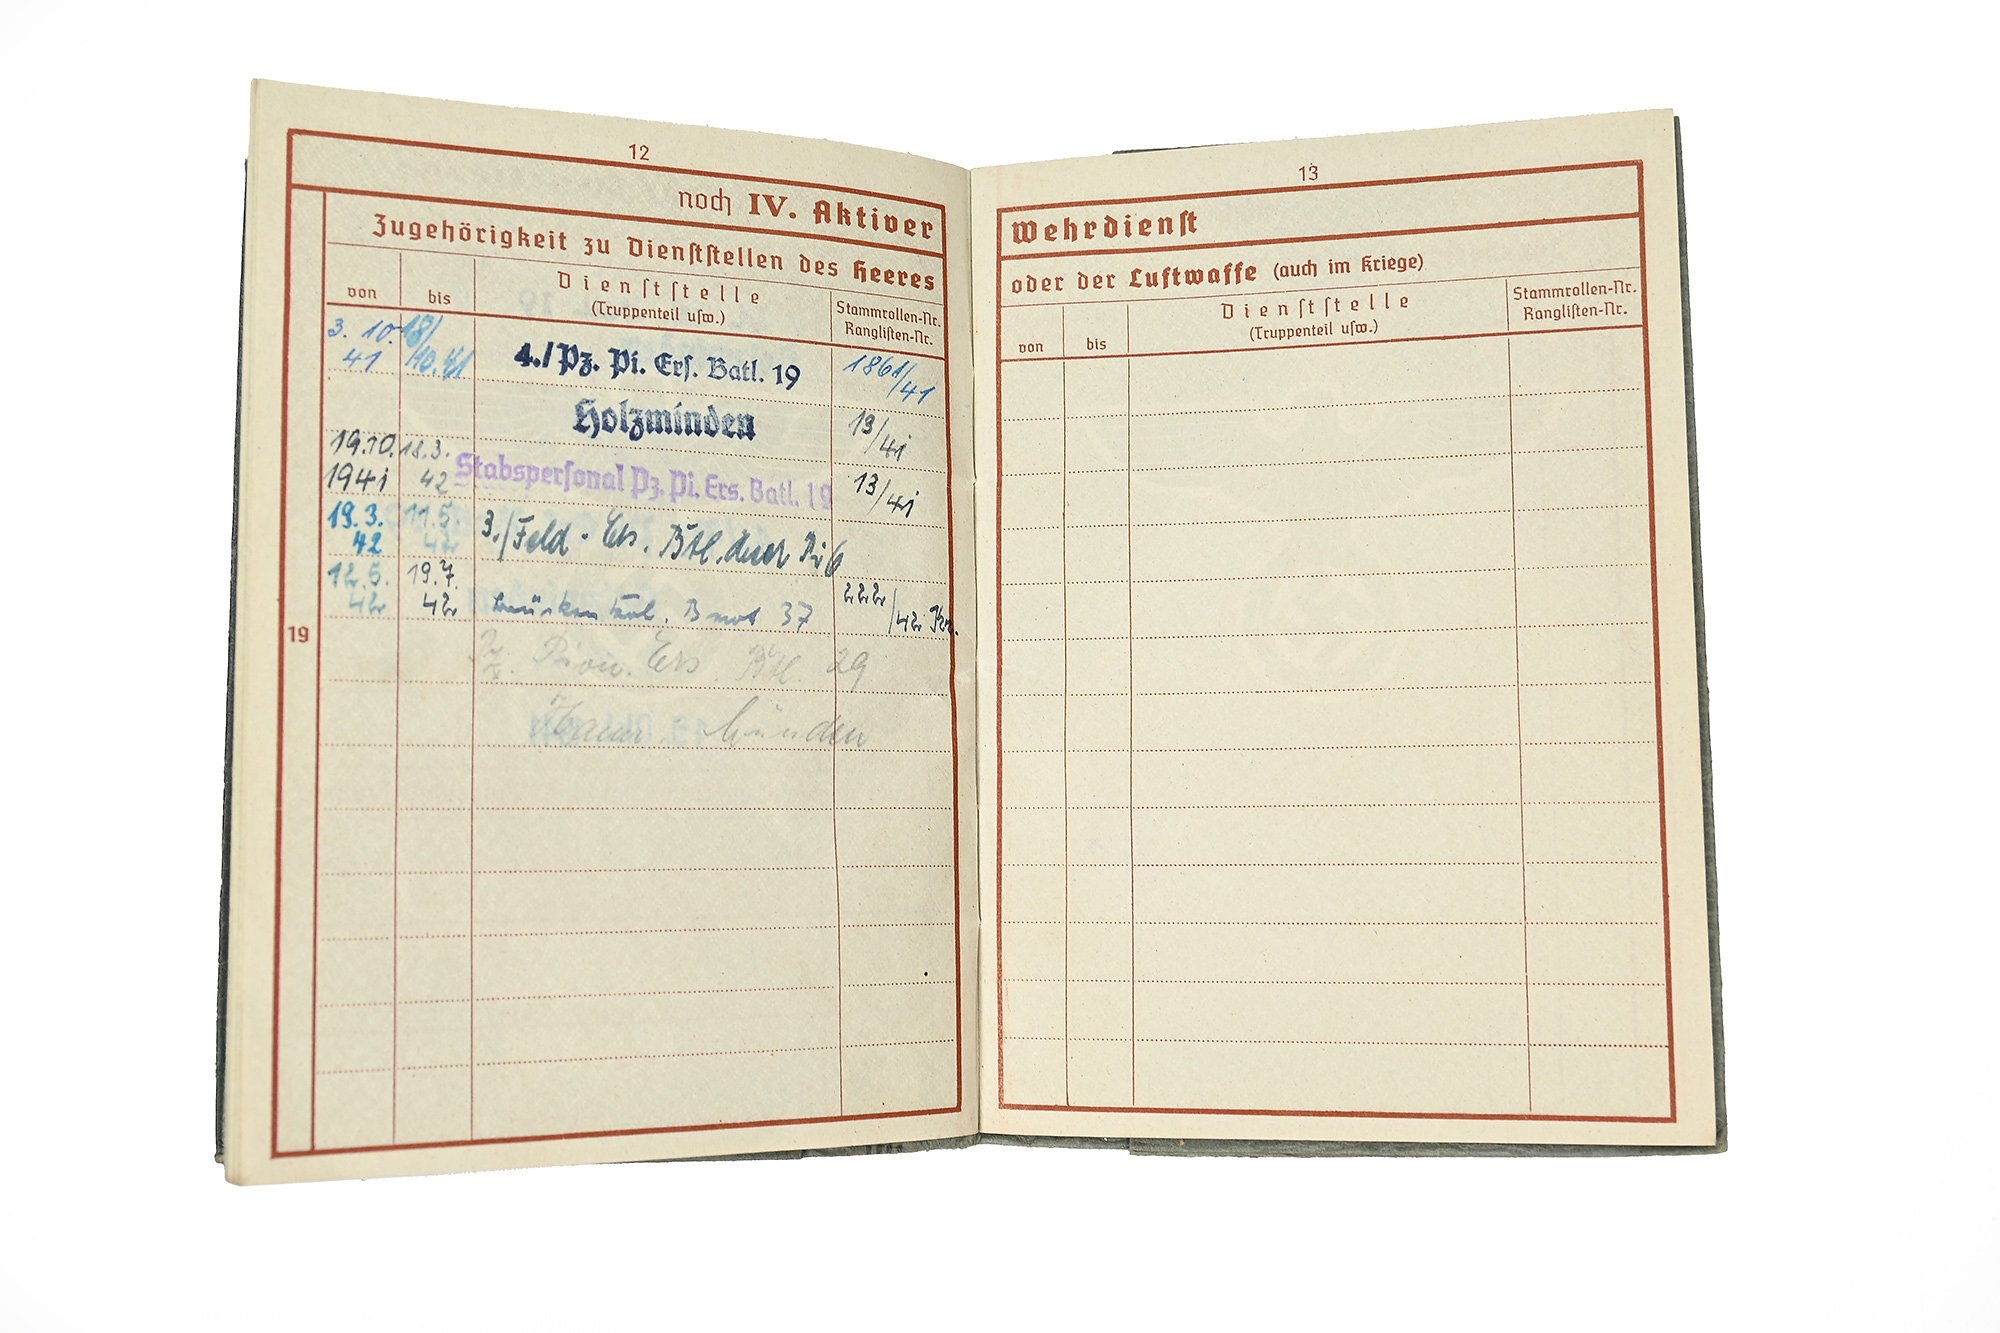 12
noch IV. Aktiver
Zugehörigkeit zu Dienststellen des Heeres
von bis Dienststelle (Truppenteil usw.) Stammrollen-Nr. Ranglisten-Nr.
3. 10. 41 18/10.41 4./Pz. Pi. Ers. Batl. 19 1861/41
Holzminden 13/41
19.10. 1941 18.3. 42 Stabspersonal Pz. Pi. Ers. Batl. 19 13/41
19.3. 42 11.5. 42 3./Feld-Ers. Btl.
12.5. 42 19.7. 42 37 222/42
19
Pion. Ers. Btl. 29
Münden
13
Wehrdienst
oder der Luftwaffe (auch im Kriege)
von bis Dienststelle (Truppenteil usw.) Stammrollen-Nr. Ranglisten-Nr.